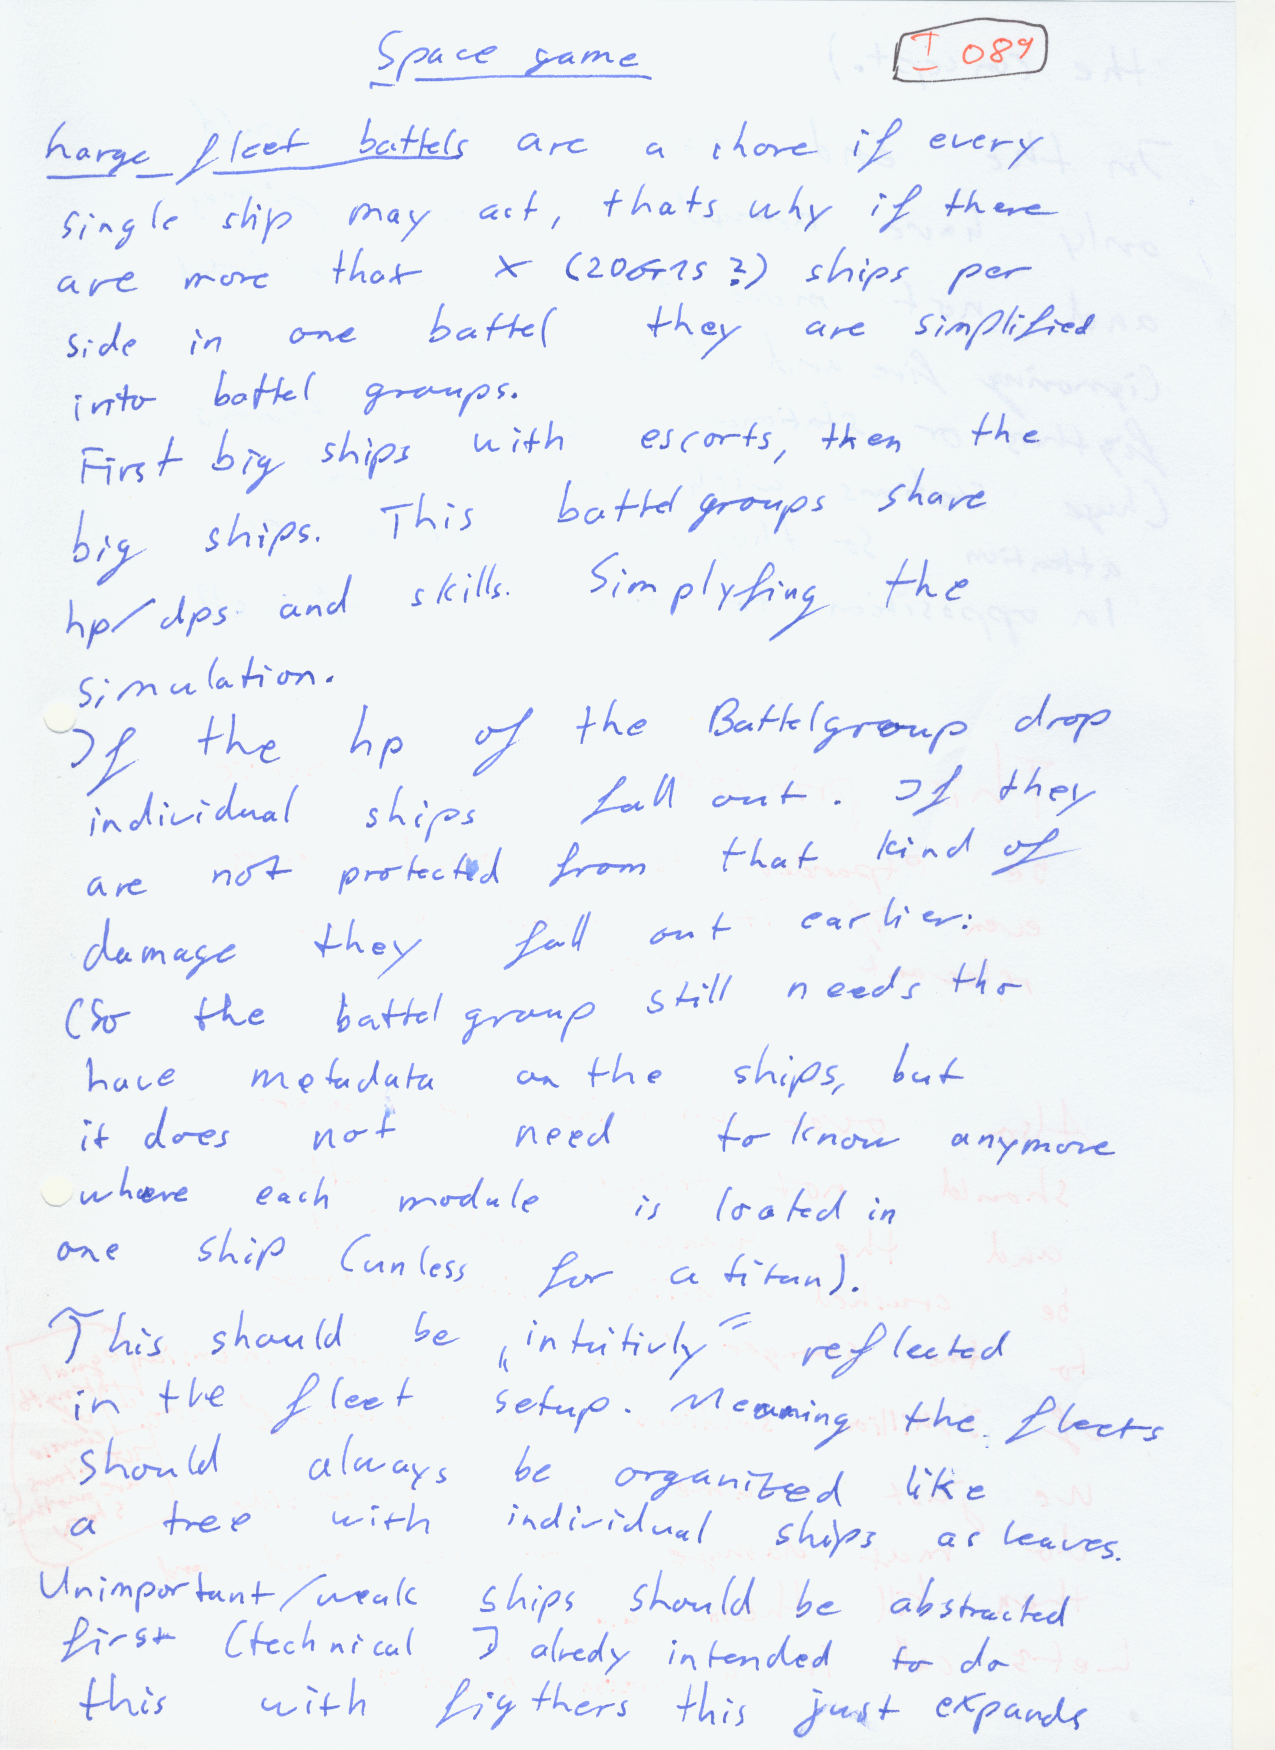 Space game
I 089
Large fleet battels are a chore if every
single ship may act, thats why if there
are more that X (20 15?) ships per
side in one battel they are simplified
into battel groups.
First big ships with escorts, then the
big ships. This battelgroups share
hp/dps and skills. Simplyfing the
simulation.
If the hp of the Battelgroup drop
individual ships fall out. If they
are not protected from that kind of
damage they fall out earlier:
(So the battel group still needs tho
have metadata on the ships, but
it does not need to know anymore
where each module is loated in
one ship (unless for a titan).
This should be „intuitivly" reflected
in the fleet setup. Meaning the fleets
should always be organized like
a tree with individual ships as leaves.
Unimportant/weak ships should be abstracted
first (technical I alredy intended to do
this with figthers this just expands